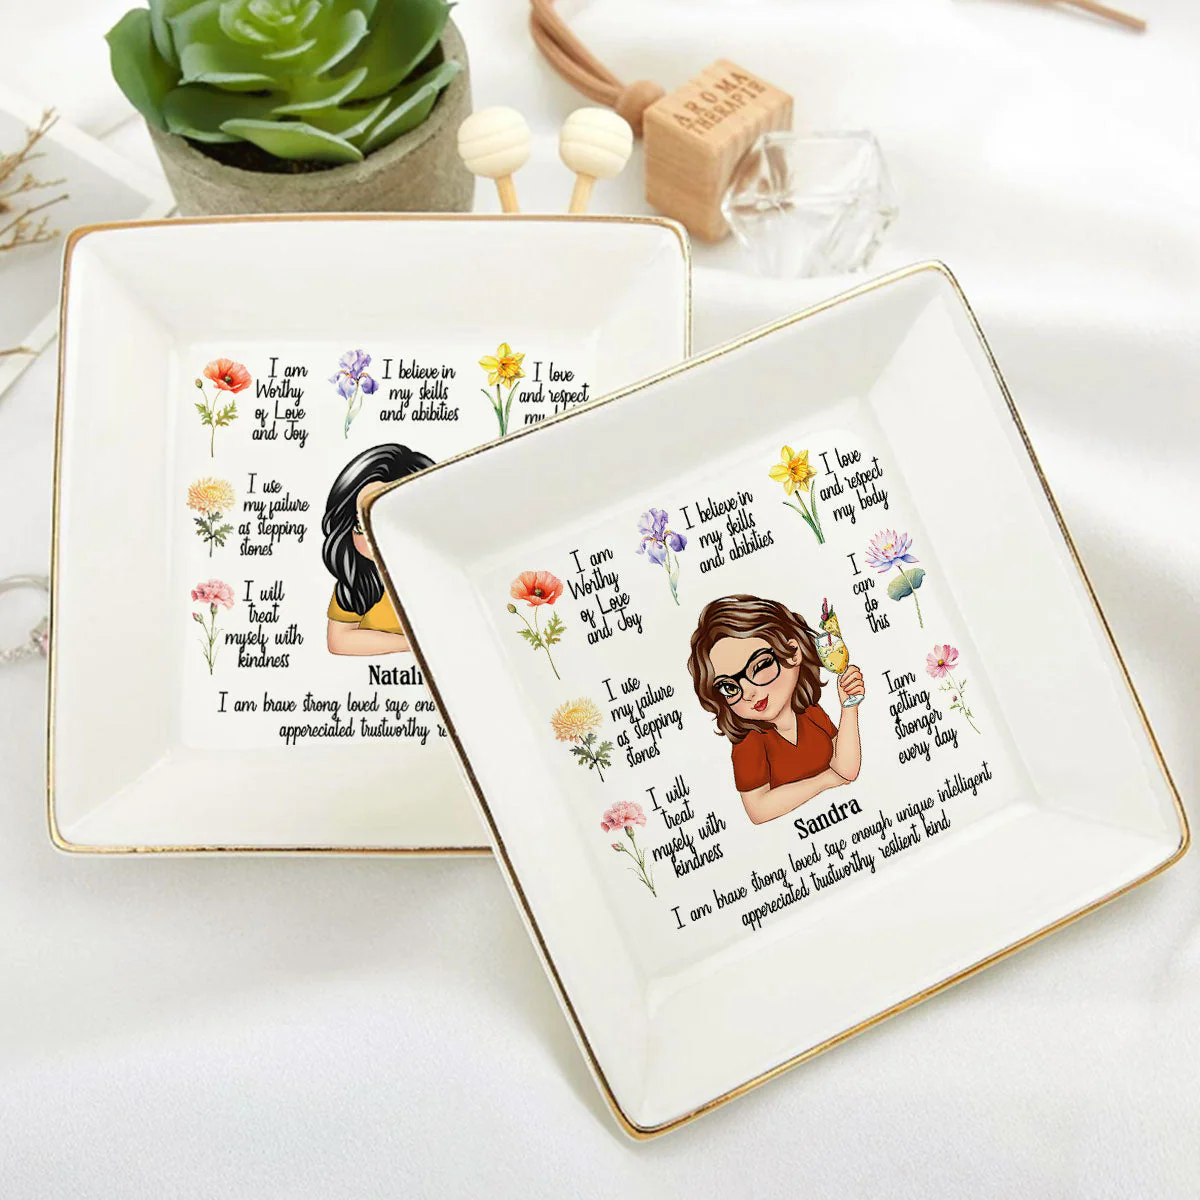 AROMA
THERAPIE
I am
Worthy
of Love
and Joy
I believe in
my skills
and abibities
I love
and respect
my
I use
my failure
as stepping
stones
I will
treat
myself with
kindness
Natali
I am brave strong loved safe eno
appereciated trustworthy re
I am
Worthy
of Love
and Joy
I believe in
my skills
and abibities
I love
and respect
my body
I
can
do
this
I use
my failure
as stepping
stones
Iam
getting
stronger
every day
I will
treat
myself with
kindness
Sandra
I am brave strong loved safe enough unique intelligent
appereciated trustworthy reslient kind